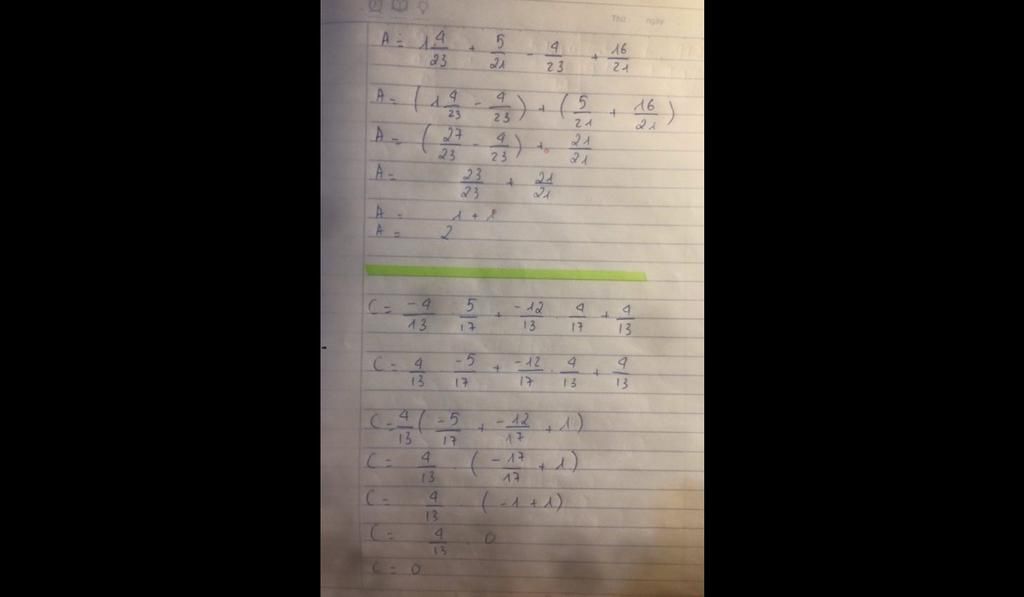 Thứ ngày
A = 1 4/23 + 5/21 - 4/23 + 16/21
A = (1 4/23 - 4/23) + (5/21 + 16/21)
A = (27/23 - 4/23) + 21/21
A = 23/23 + 21/21
A = 1 + 1
A = 2
C = -4/13 . 5/17 + -12/13 . 4/17 + 4/13
C = 4/13 . -5/17 + -12/17 . 4/13 + 4/13
C = 4/13 ( -5/17 + -12/17 + 1 )
C = 4/13 . ( -17/17 + 1 )
C = 4/13 . ( -1 + 1 )
C = 4/13 . 0
C = 0